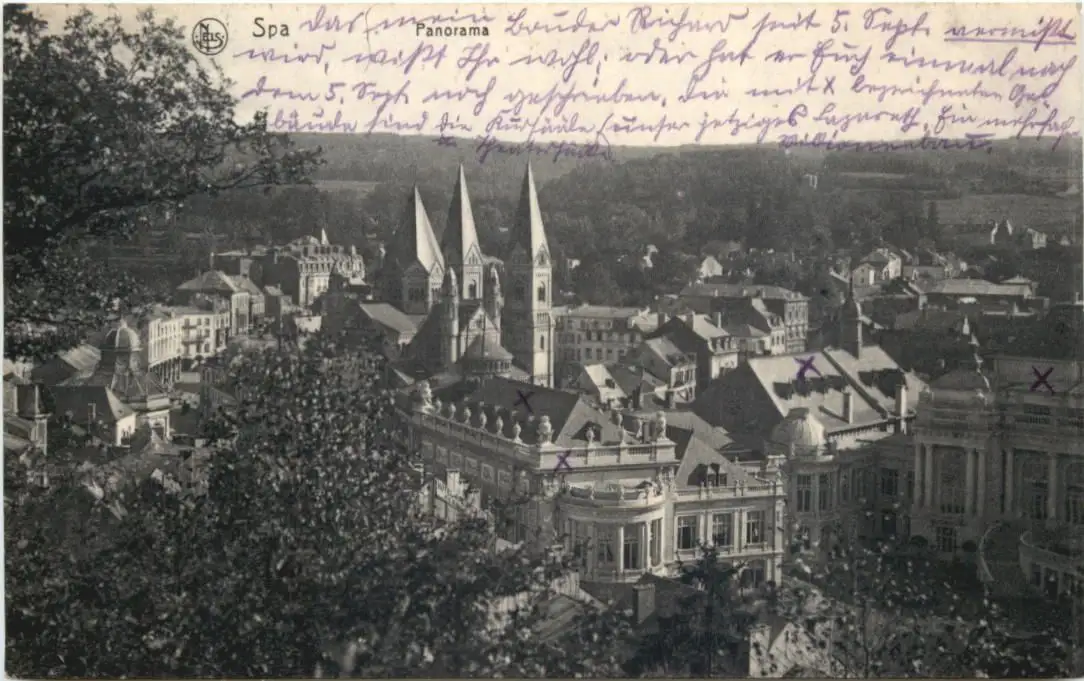 Nels Spa Panorama
Das mein Bruder Richard seit 5. Sept. vermißt
wird, wißt Ihr wohl, oder hat er Euch einmal nach
dem 5. Sept. noch geschrieben, die mit X bezeichneten Ge-
bäude sind die Kursääle (unser jetziges Lazareth, Ein mehrfach
Millionenbau.
u. Theatersääle